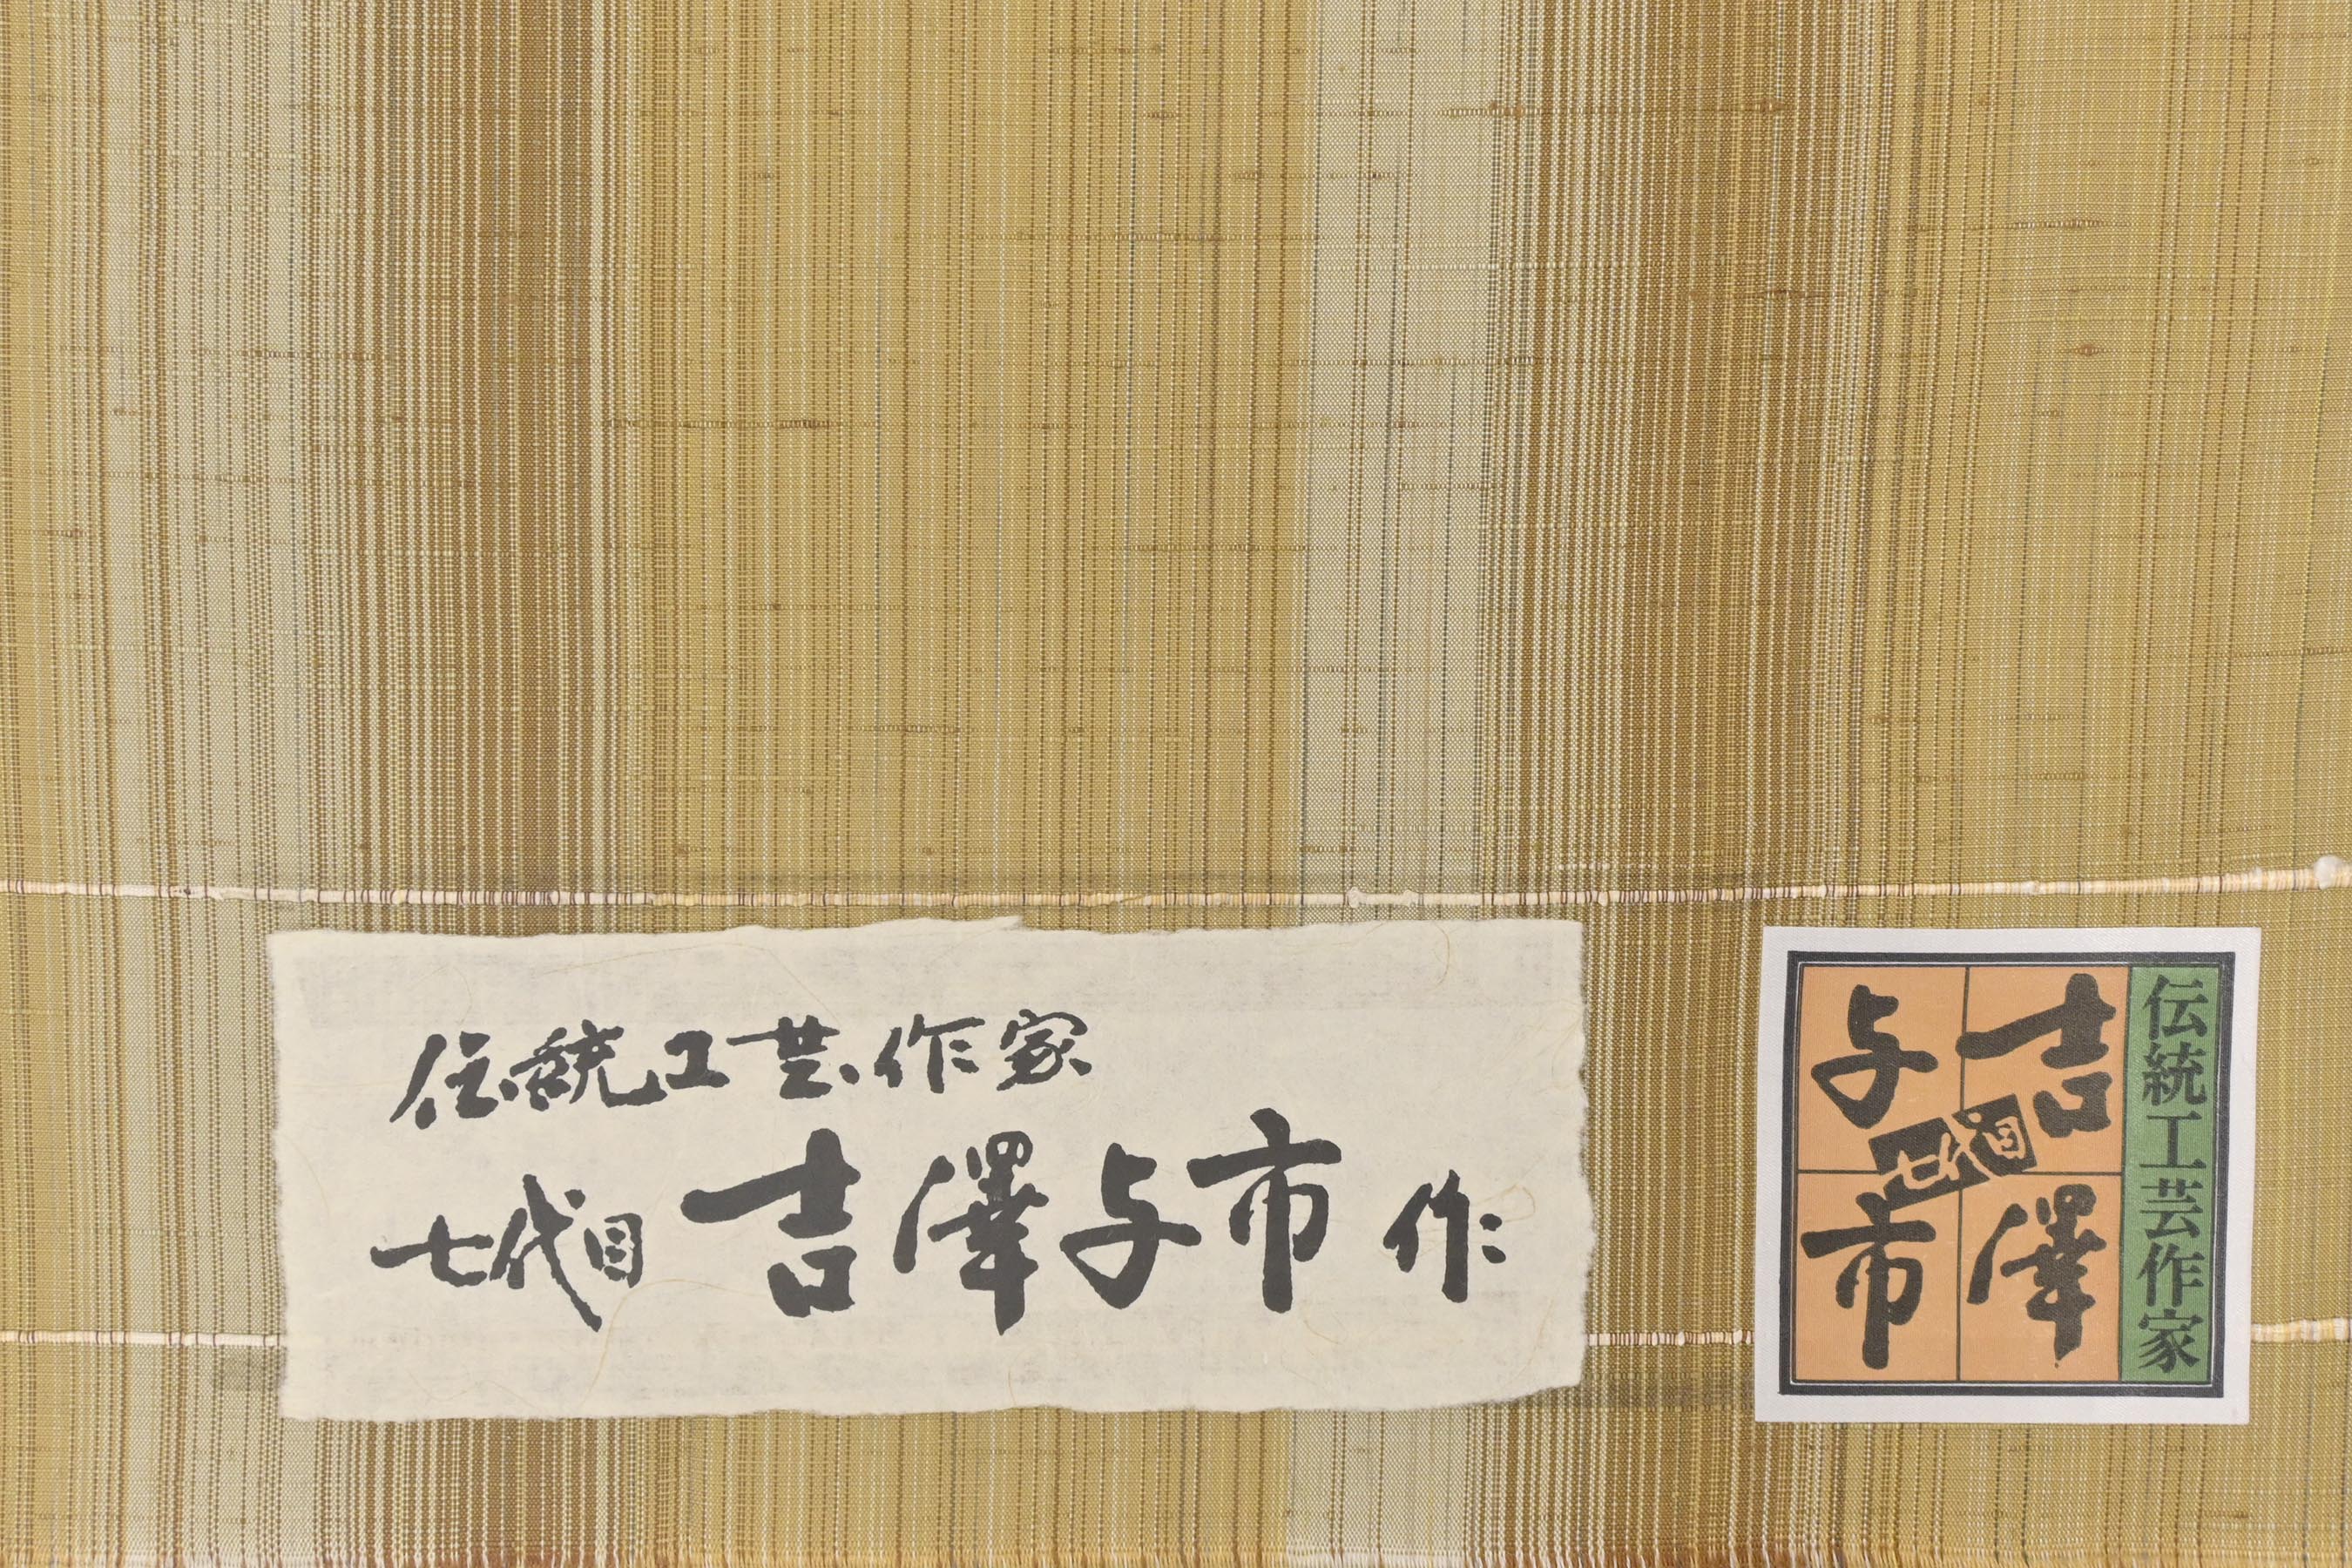 伝統工芸作家
七代目 吉澤与市 作
伝統工芸作家
吉澤
与市
七代目